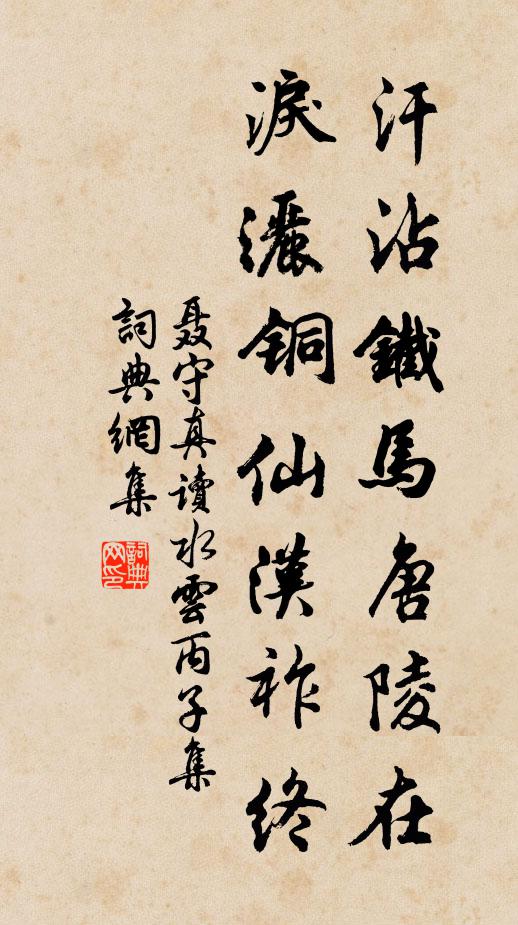 汗沾鐵馬唐陵在
淚灑銅仙漢祚終
聂守真讀水雲丙子集
詞典網集
詞典网印